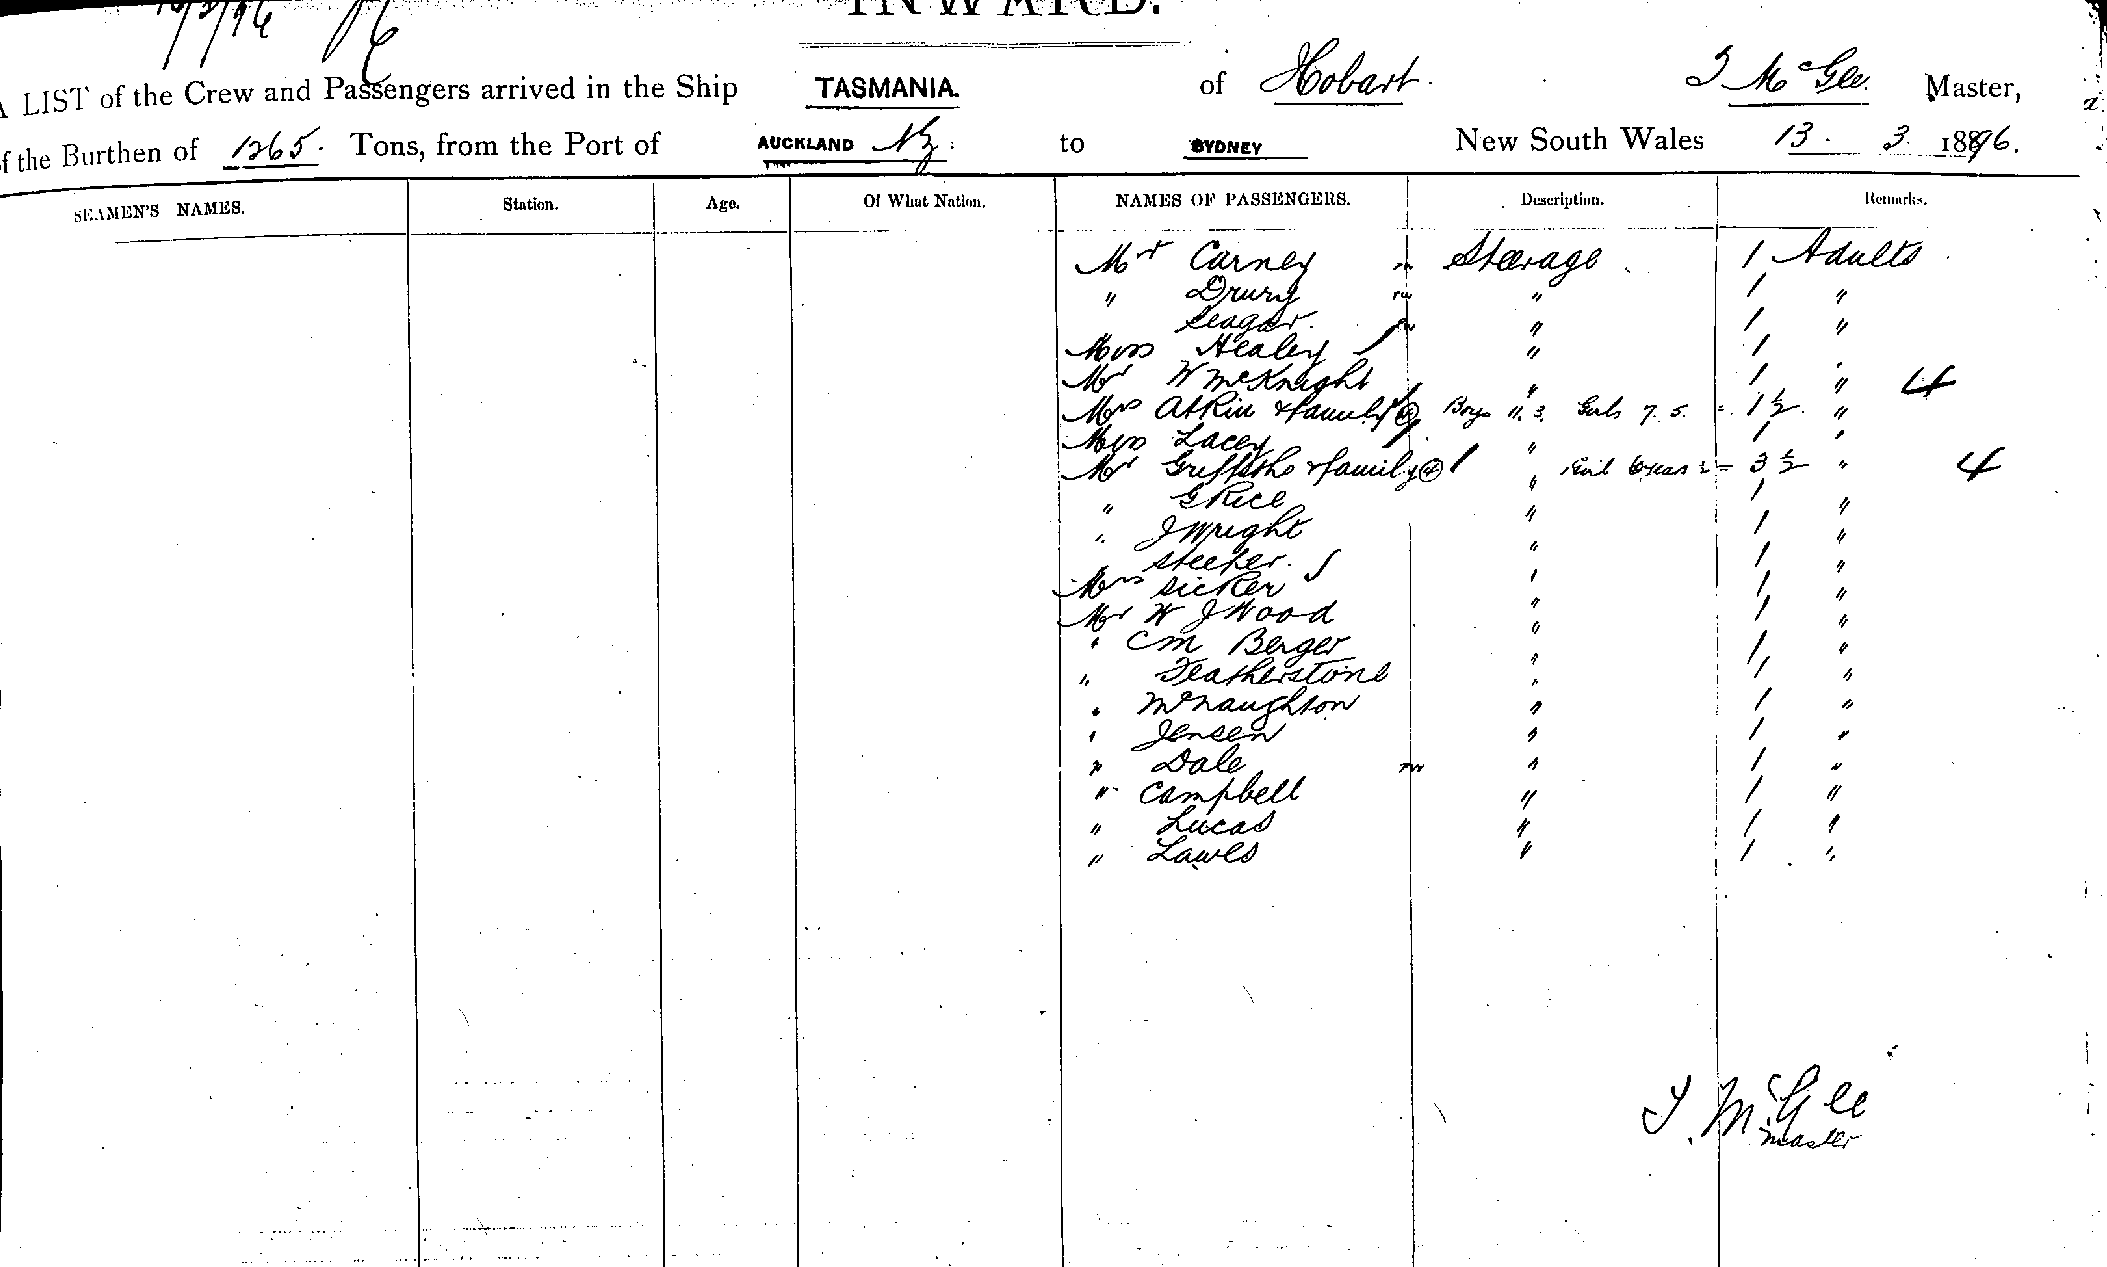 INWARD.
A LIST of the Crew and Passengers arrived in the Ship TASMANIA. of Hobart. T McGee. Master,
of the Burthen of 1265. Tons, from the Port of AUCKLAND NZ. to SYDNEY New South Wales 13. 3. 1896.
SEAMEN'S NAMES. Station. Age. Of What Nation. NAMES OF PASSENGERS. Description. Remarks.
Mr Carney Steerage 1 Adults
" Drury " 1 "
Seagar. " 1 "
Miss Healey " 1 "
Mr W McKnight " 1 " 4
Mrs Atkin & family Boys 11. 3. Girls 7. 5. = 1½ "
Miss Lacey " 1 "
Mr Griffiths & family (4) " = 3½ " 4
" G Rice " 1 "
" J Wright " 1 "
Steeper. " 1 "
Mrs Sicker " 1 "
Mr W J Wood " 1 "
" C M Berger " 1 "
" Featherstone " 1 "
" McNaughton " 1 "
" Jensen " 1 "
" Dale " 1 "
" Campbell " 1 "
" Lucas " 1 "
" Lawes " 1 "
T. McGee
Master